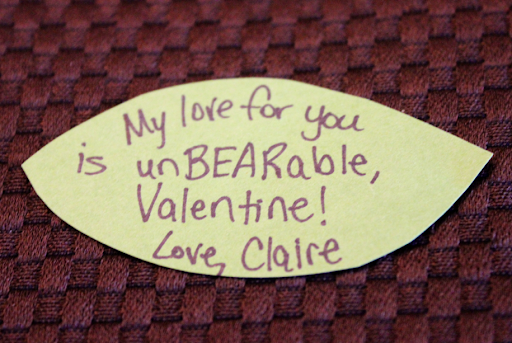 My love for you
is unBEARable,
Valentine!
Love, Claire